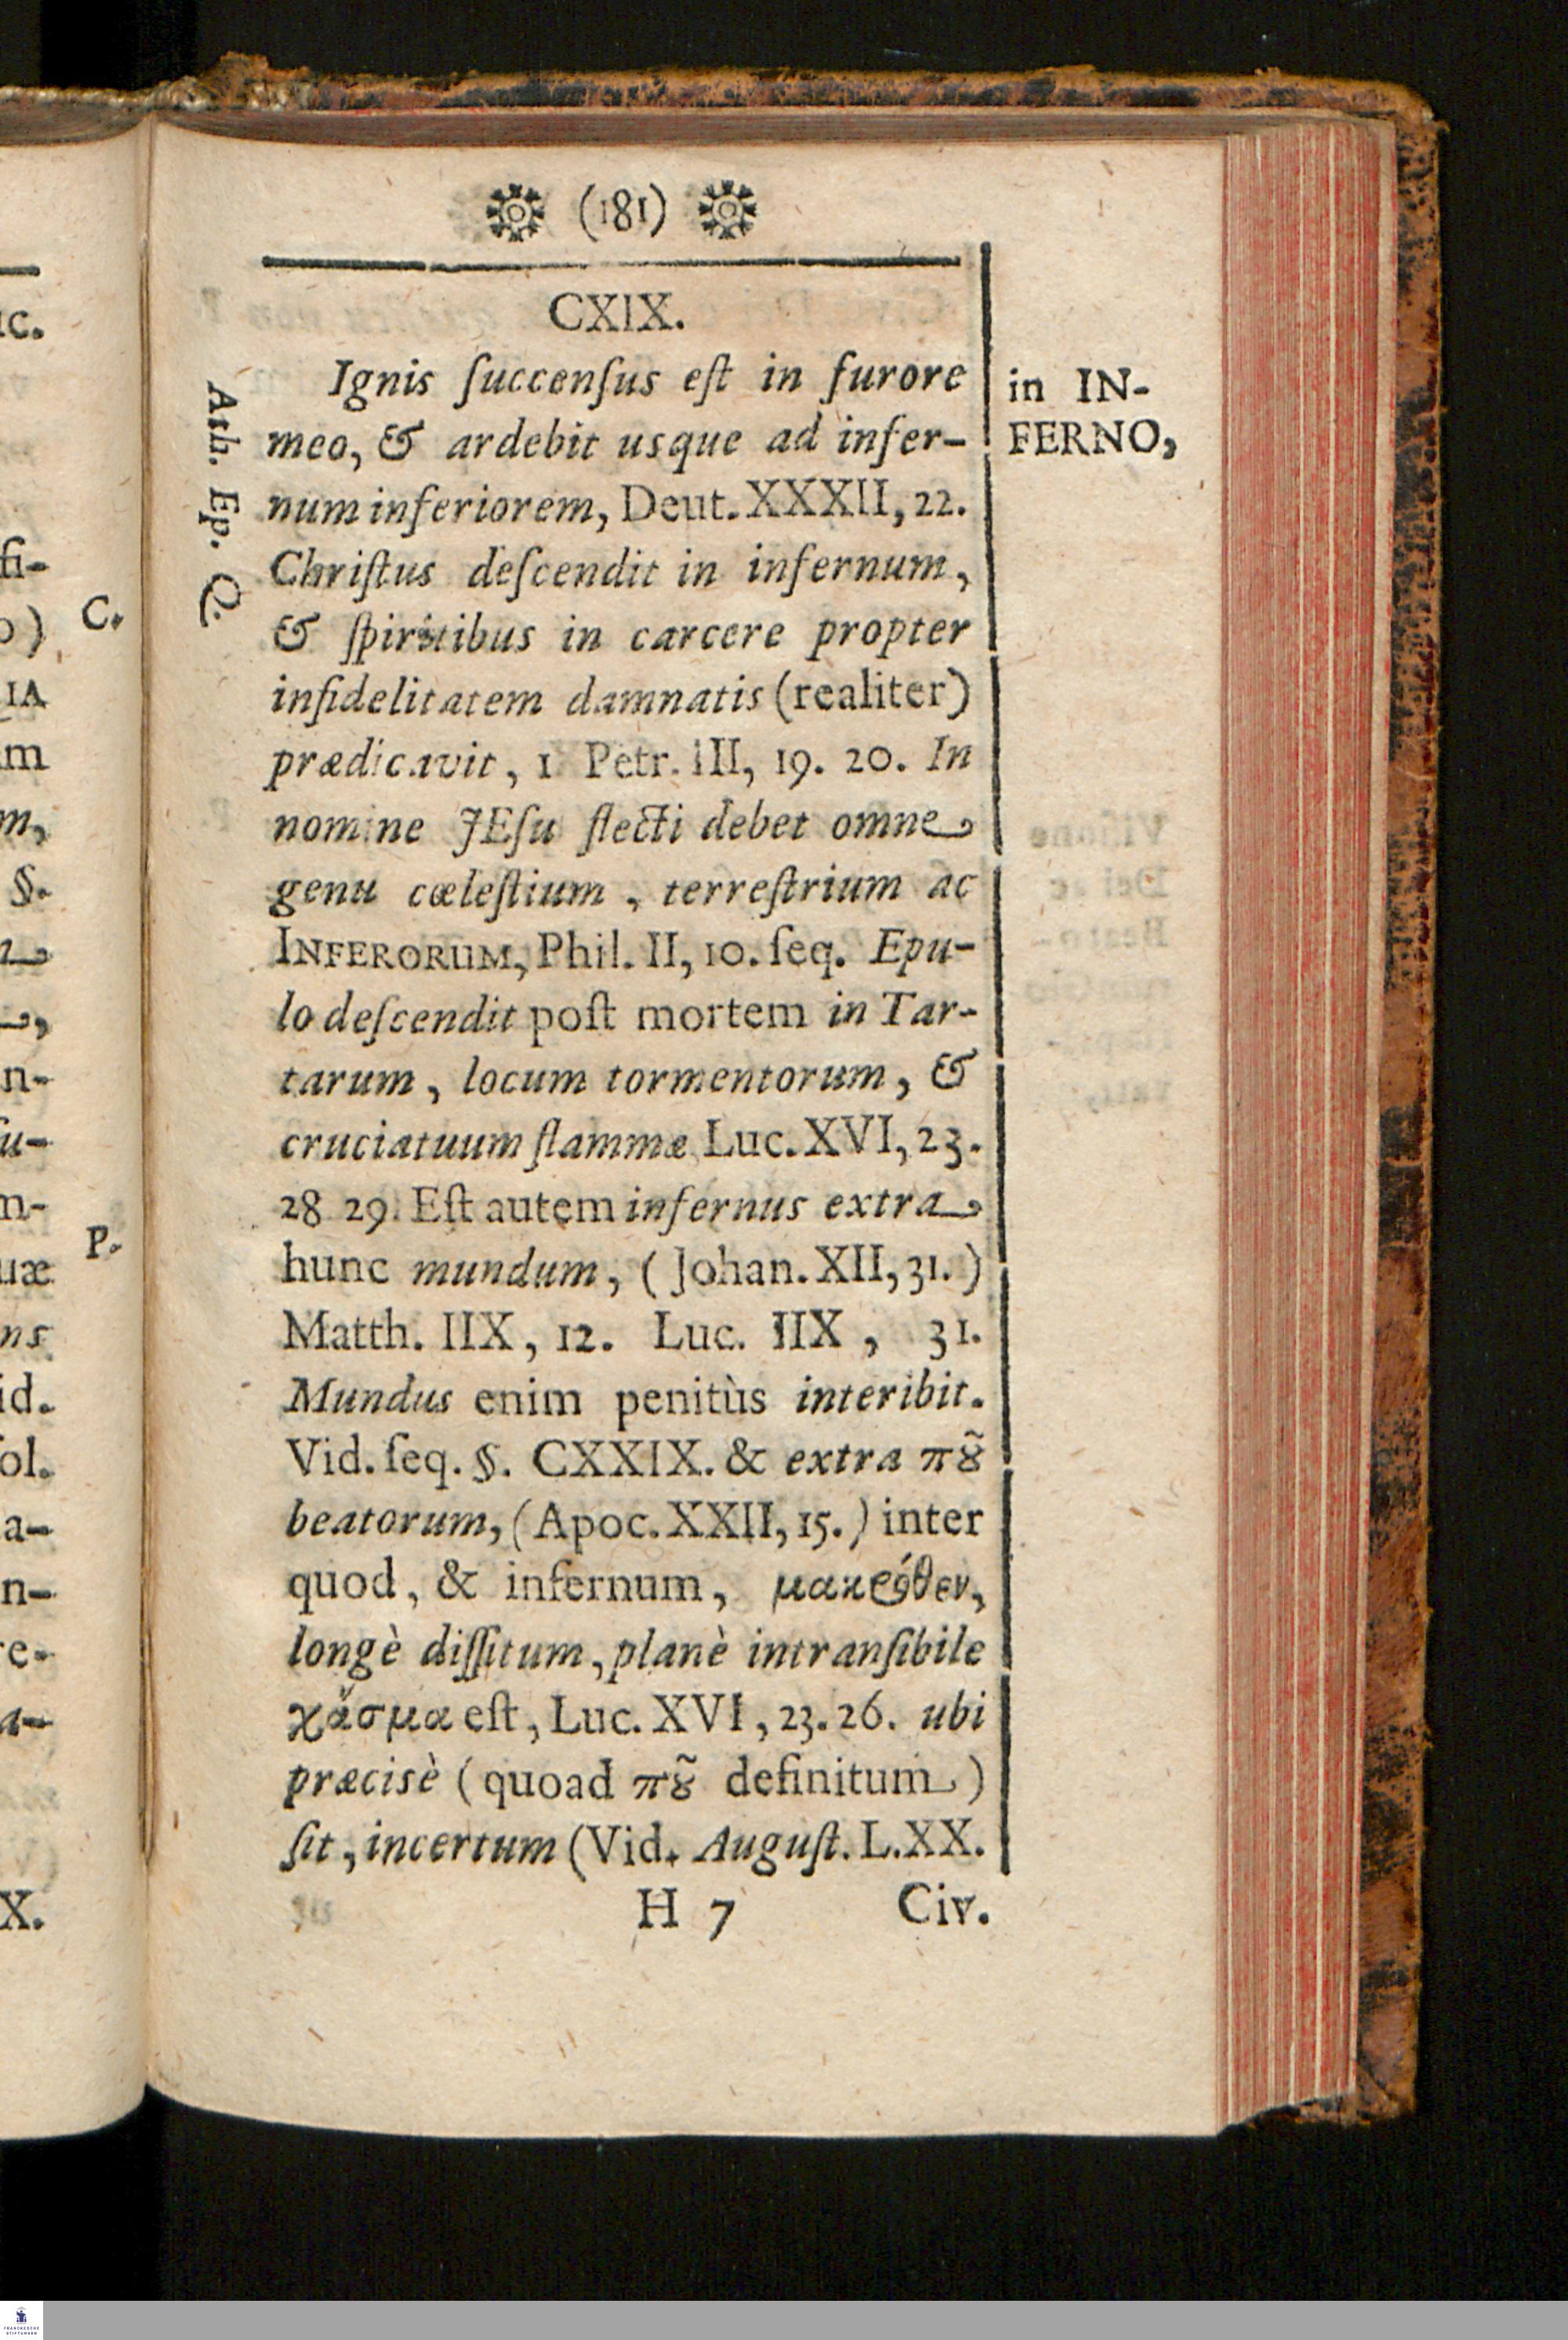 (181)
CXIX.
Ignis ſuccenſus eſt in furore
meo, & ardebit usque ad infer-
num inferiorem, Deut. XXXII, 22.
Chriſtus deſcendit in infernum,
& ſpiritibus in carcere propter
infidelitatem damnatis (realiter)
prædicavit, 1 Petr. III, 19. 20. In
nomine JEſu flecti debet omne
genu cœleſtium, terreſtrium ac
INFERORUM, Phil. II, 10. ſeq. Epu-
lo deſcendit poſt mortem in Tar-
tarum, locum tormentorum, &
cruciatuum flammæ Luc. XVI, 23.
28 29. Eſt autem infernus extra
hunc mundum, (Johan. XII, 31.)
Matth. IIX, 12. Luc. IIX, 31.
Mundus enim penitùs interibit.
Vid. ſeq. §. CXXIX. & extra πȣ͂
beatorum, (Apoc. XXII, 15.) inter
quod, & infernum, μακρόθεν,
longè diſſitum, planè intranſibile
χάσμα eſt, Luc. XVI, 23. 26. ubi
præcisè (quoad πȣ͂ definitum)
ſit, incertum (Vid. Auguſt. L. XX.
H 7 Civ.
in IN-
FERNO,
Ath. Ep. Q.
C.
P.
FRANCKESCHE
STIFTUNGEN